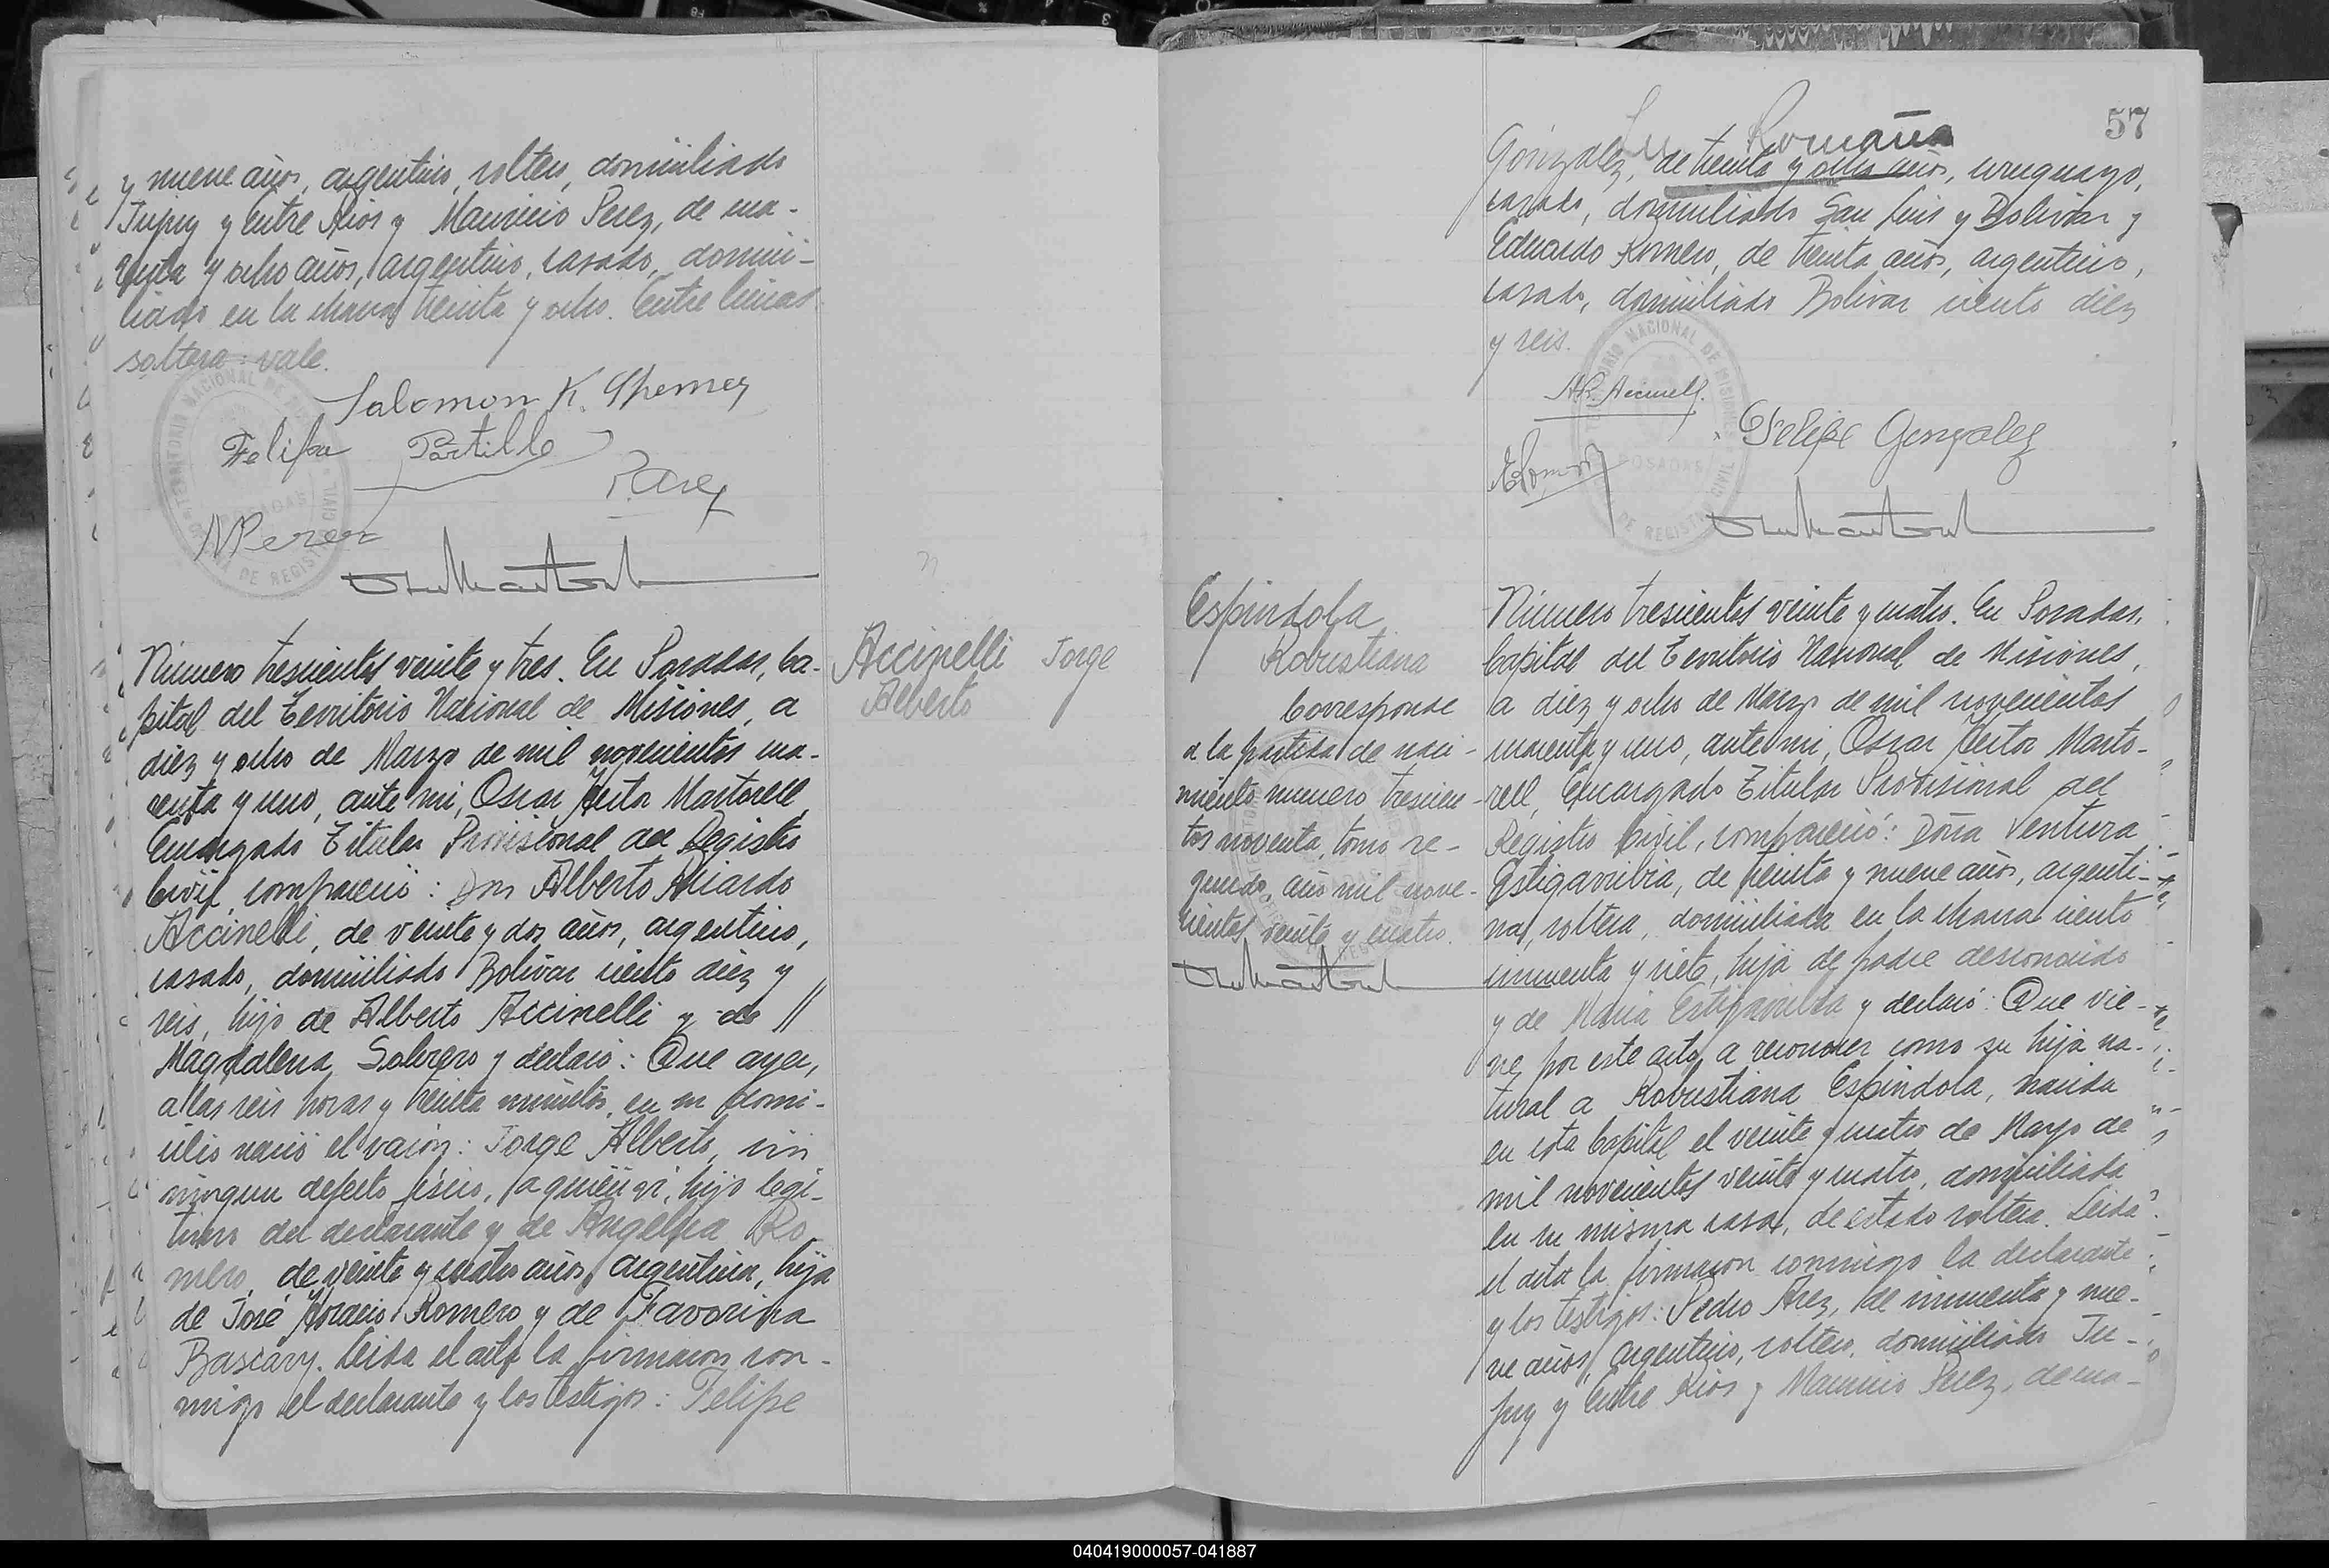 y nueve años, argentino, soltero, domiciliado
Jujuy y Entre Rios y Mauricio Perez, de cua-
renta y ocho años, argentino, casado, domici-
liado en la chacra treinta y ocho. Entre lineas
soltera: vale.
TERRITORIO NACIONAL DE MISIONES
POSADAS
OFICINA DE REGISTRO CIVIL
Salomon K.
Felipa Portillo
P Arez
M Perez
Número trescientos veinte y tres. En Posadas, Ca-
pital del Territorio Nacional de Misiones, a
diez y ocho de Marzo de mil novecientos cua-
renta y uno, ante mi, Oscar Hector Martorell,
Encargado Titular Provisional del Registro
Civil, compareció: Don Alberto Ricardo
Accinelli, de veinte y dos años, argentino,
casado, domiciliado Bolivar ciento diez y
seis, hijo de Alberto Accinelli y de //
Magdalena Sobrero y declaró: Que ayer,
a las seis horas y treinta minutos, en su domi-
cilio nació el varón: Jorge Alberto, sin
ningun defecto fisico, a quien vi, hijo legi-
timo del declarante y de Angelica Ro
mero, de veinte y cuatro años, argentina, hija
de José Horacio Romero y de Favorina
Bascary. Leida el acta la firmaron con-
migo el declarante y los testigos: Felipe
Accinelli Jorge
Alberto
57
Romaña
Gonzalez, de treinta y ocho años, uruguayo,
casado, domiciliado San Luis y Bolivar y
Eduardo Romero, de treinta años, argentino,
casado, domiciliado Bolivar ciento diez
y seis.
TERRITORIO NACIONAL DE MISIONES
POSADAS
OFICINA DE REGISTRO CIVIL
AR. Accinelli
Felipe Gonzalez
ERomero
Espindola
Robustiana
Corresponde
a la partida de naci-
miento numero trescien-
tos noventa, tomo se-
gundo, año mil nove-
cientos veinte y cuatro.
Número trescientos veinte y cuatro. En Posadas,
Capital del Territorio Nacional de Misiones,
a diez y ocho de Marzo de mil novecientos
cuarenta y uno, ante mi, Oscar Hector Marto-
rell, Encargado Titular Provisional del
Registro Civil, compareció: Doña Ventura
Estigarribia, de treinta y nueve años, argenti-
na, soltera, domiciliada en la chacra ciento
cincuenta y siete, hija de padre desconocido
y de Maria Estigarribia y declaró: Que vie-
ne por este acto a reconocer como su hija na-
tural a Robustiana Espindola, nacida
en esta Capital el veinte y cuatro de Mayo de
mil novecientos veinte y cuatro, domiciliada
en su misma casa, de estado soltera. Leida
el acta la firmaron conmigo la declarante
y los testigos: Pedro Arez, de cincuenta y nue-
ve años, argentino, soltero, domiciliado Ju-
juy y Entre Rios y Mauricio Perez, de cua-
040419000057-041887